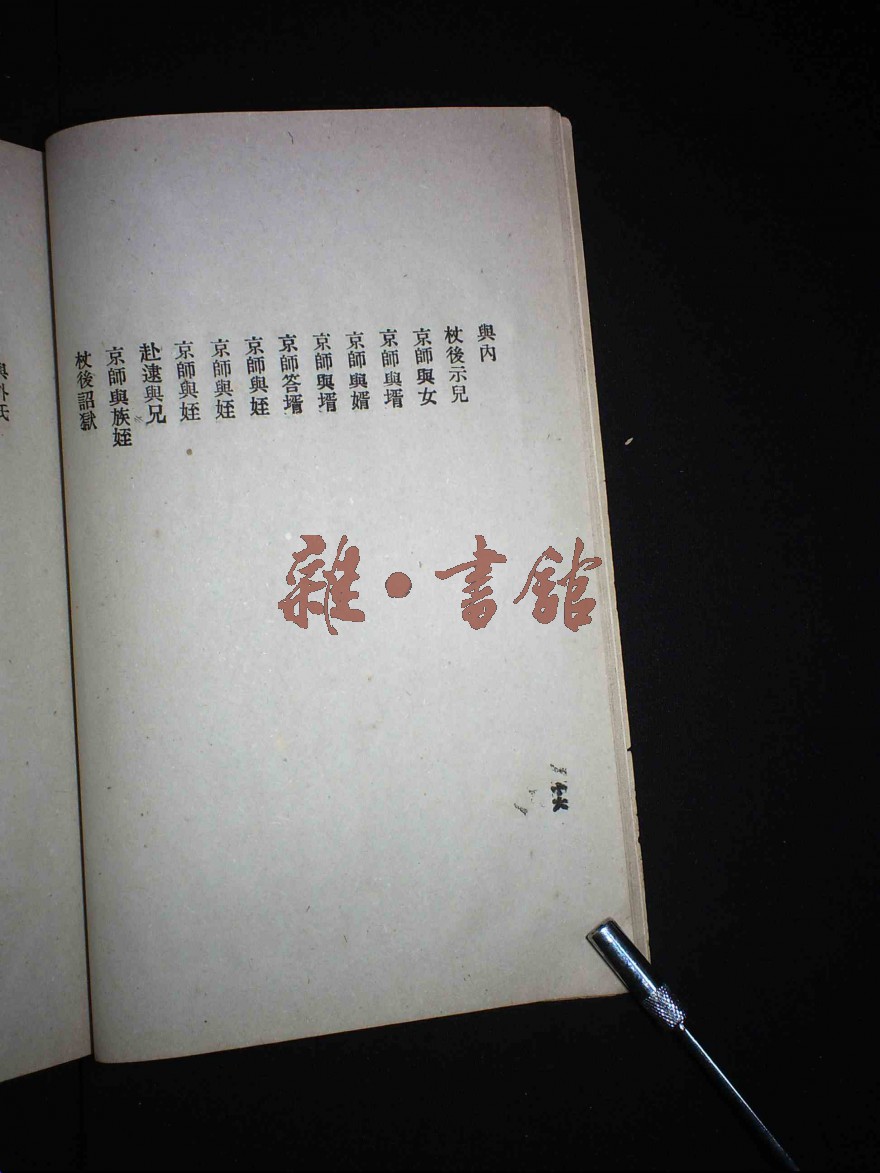 與內
杖後示兒
京師與女
京師與壻
京師與婿
京師與壻
京師答壻
京師與姪
京師與姪
京師與姪
赴逮與兄
京師與族姪
杖後詔獄
十六
雜·書館